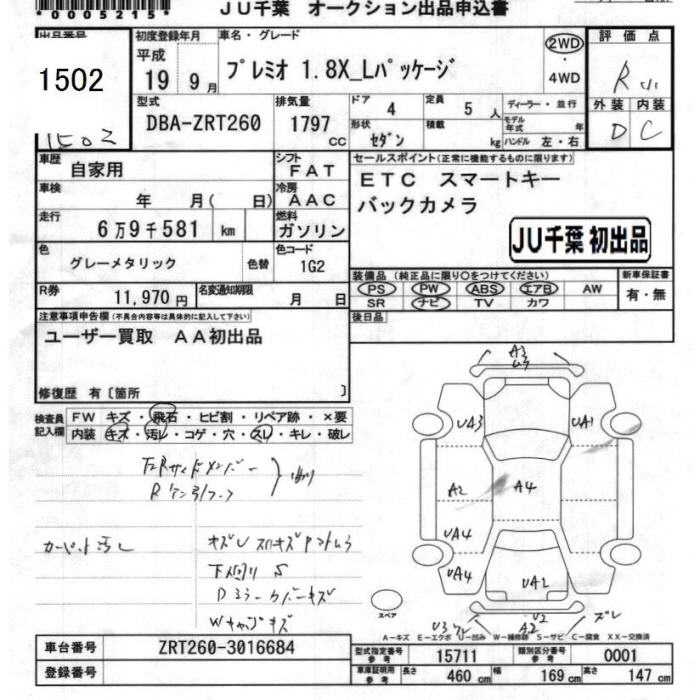 *0005215*
JU千葉 オークション出品申込書
出品番号
1502
1502
初度登録年月
平成
19 9月
車名・グレード
プレミオ 1.8X_Lパッケージ
2WD
・
4WD
評価点
R
外装 内装
D C
型式
DBA-ZRT260
排気量
1797
CC
ドア 4
定員 5 人
形状 セダン
積載 kg
ディーラー・並行
モデル年式 年
ハンドル 左・右
車歴 自家用
シフト FAT
車検 年 月( 日)
冷房 AAC
走行 6万9千581 km
燃料 ガソリン
色 グレーメタリック 色替
色コード 1G2
R券 11,970円
名変通知期限 月 日
セールスポイント(正常に機能するものに限ります)
ETC スマートキー
バックカメラ
JU千葉 初出品
装備品 (純正品に限り○をつけてください)
PS PW ABS エアB AW
SR ナビ TV カワ
新車保証書
有・無
後日品
注意事項申告欄(不具合内容等は具体的に記入して下さい)
ユーザー買取 AA初出品
修復歴 有〔箇所 〕
検査員記入欄
FW キズ・飛石・ヒビ割・リペア跡・×要
内装 キズ・汚レ・コゲ・穴・スレ・キレ・破レ
カーペット汚レ
下廻り S
Dミラーカバーキズ
Wキャップキズ
A3
ムラ
UA3
UA1
A2
A4
UA4
UA4
UA2
U2
A2
ズレ
スペア
A－キズ E－エクボ U－凹み W－補修跡 S－サビ C－腐食 XX－交換済
車台番号 ZRT260-3016684
登録番号
型式指定番号 参考 15711
類別区分番号 参考 0001
車庫証明用 参考 長さ 460 cm 幅 169 cm 高さ 147 cm